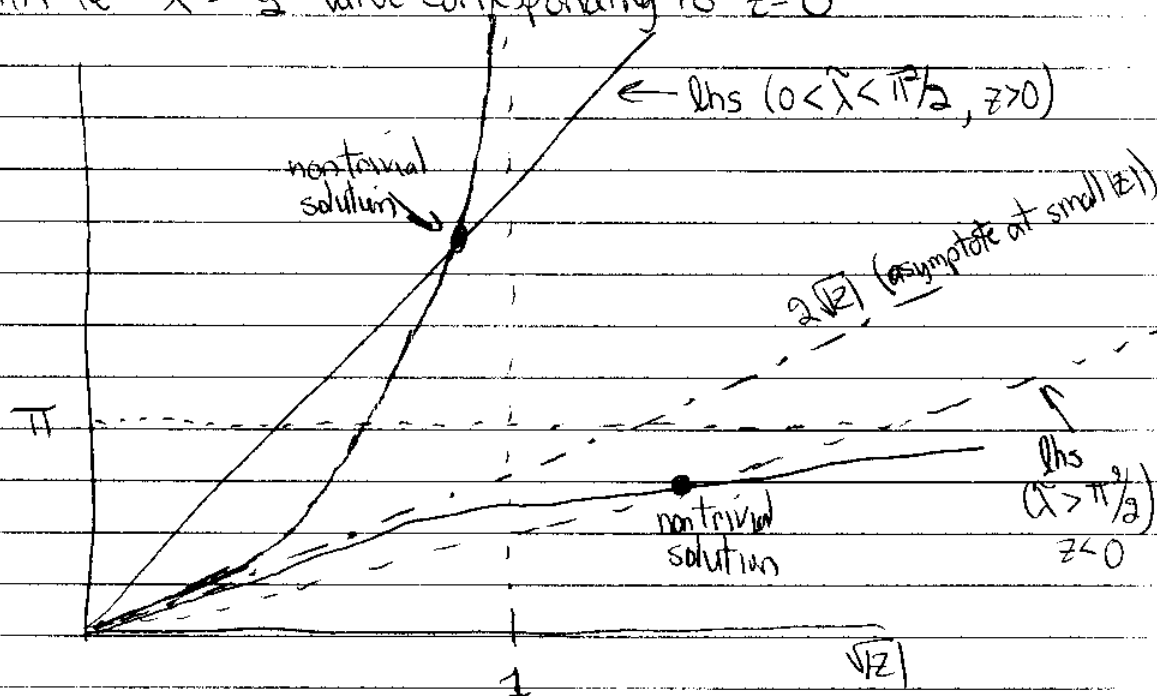 λ̃ = 2 value corresponding to z=0
← lhs (0<λ̃<π²/2, z>0)
nontrivial
solution
2√|z| (asymptote at small |z|)
π
lhs
(λ̃>π²/2)
z<0
nontrivial
solution
√|z|
1